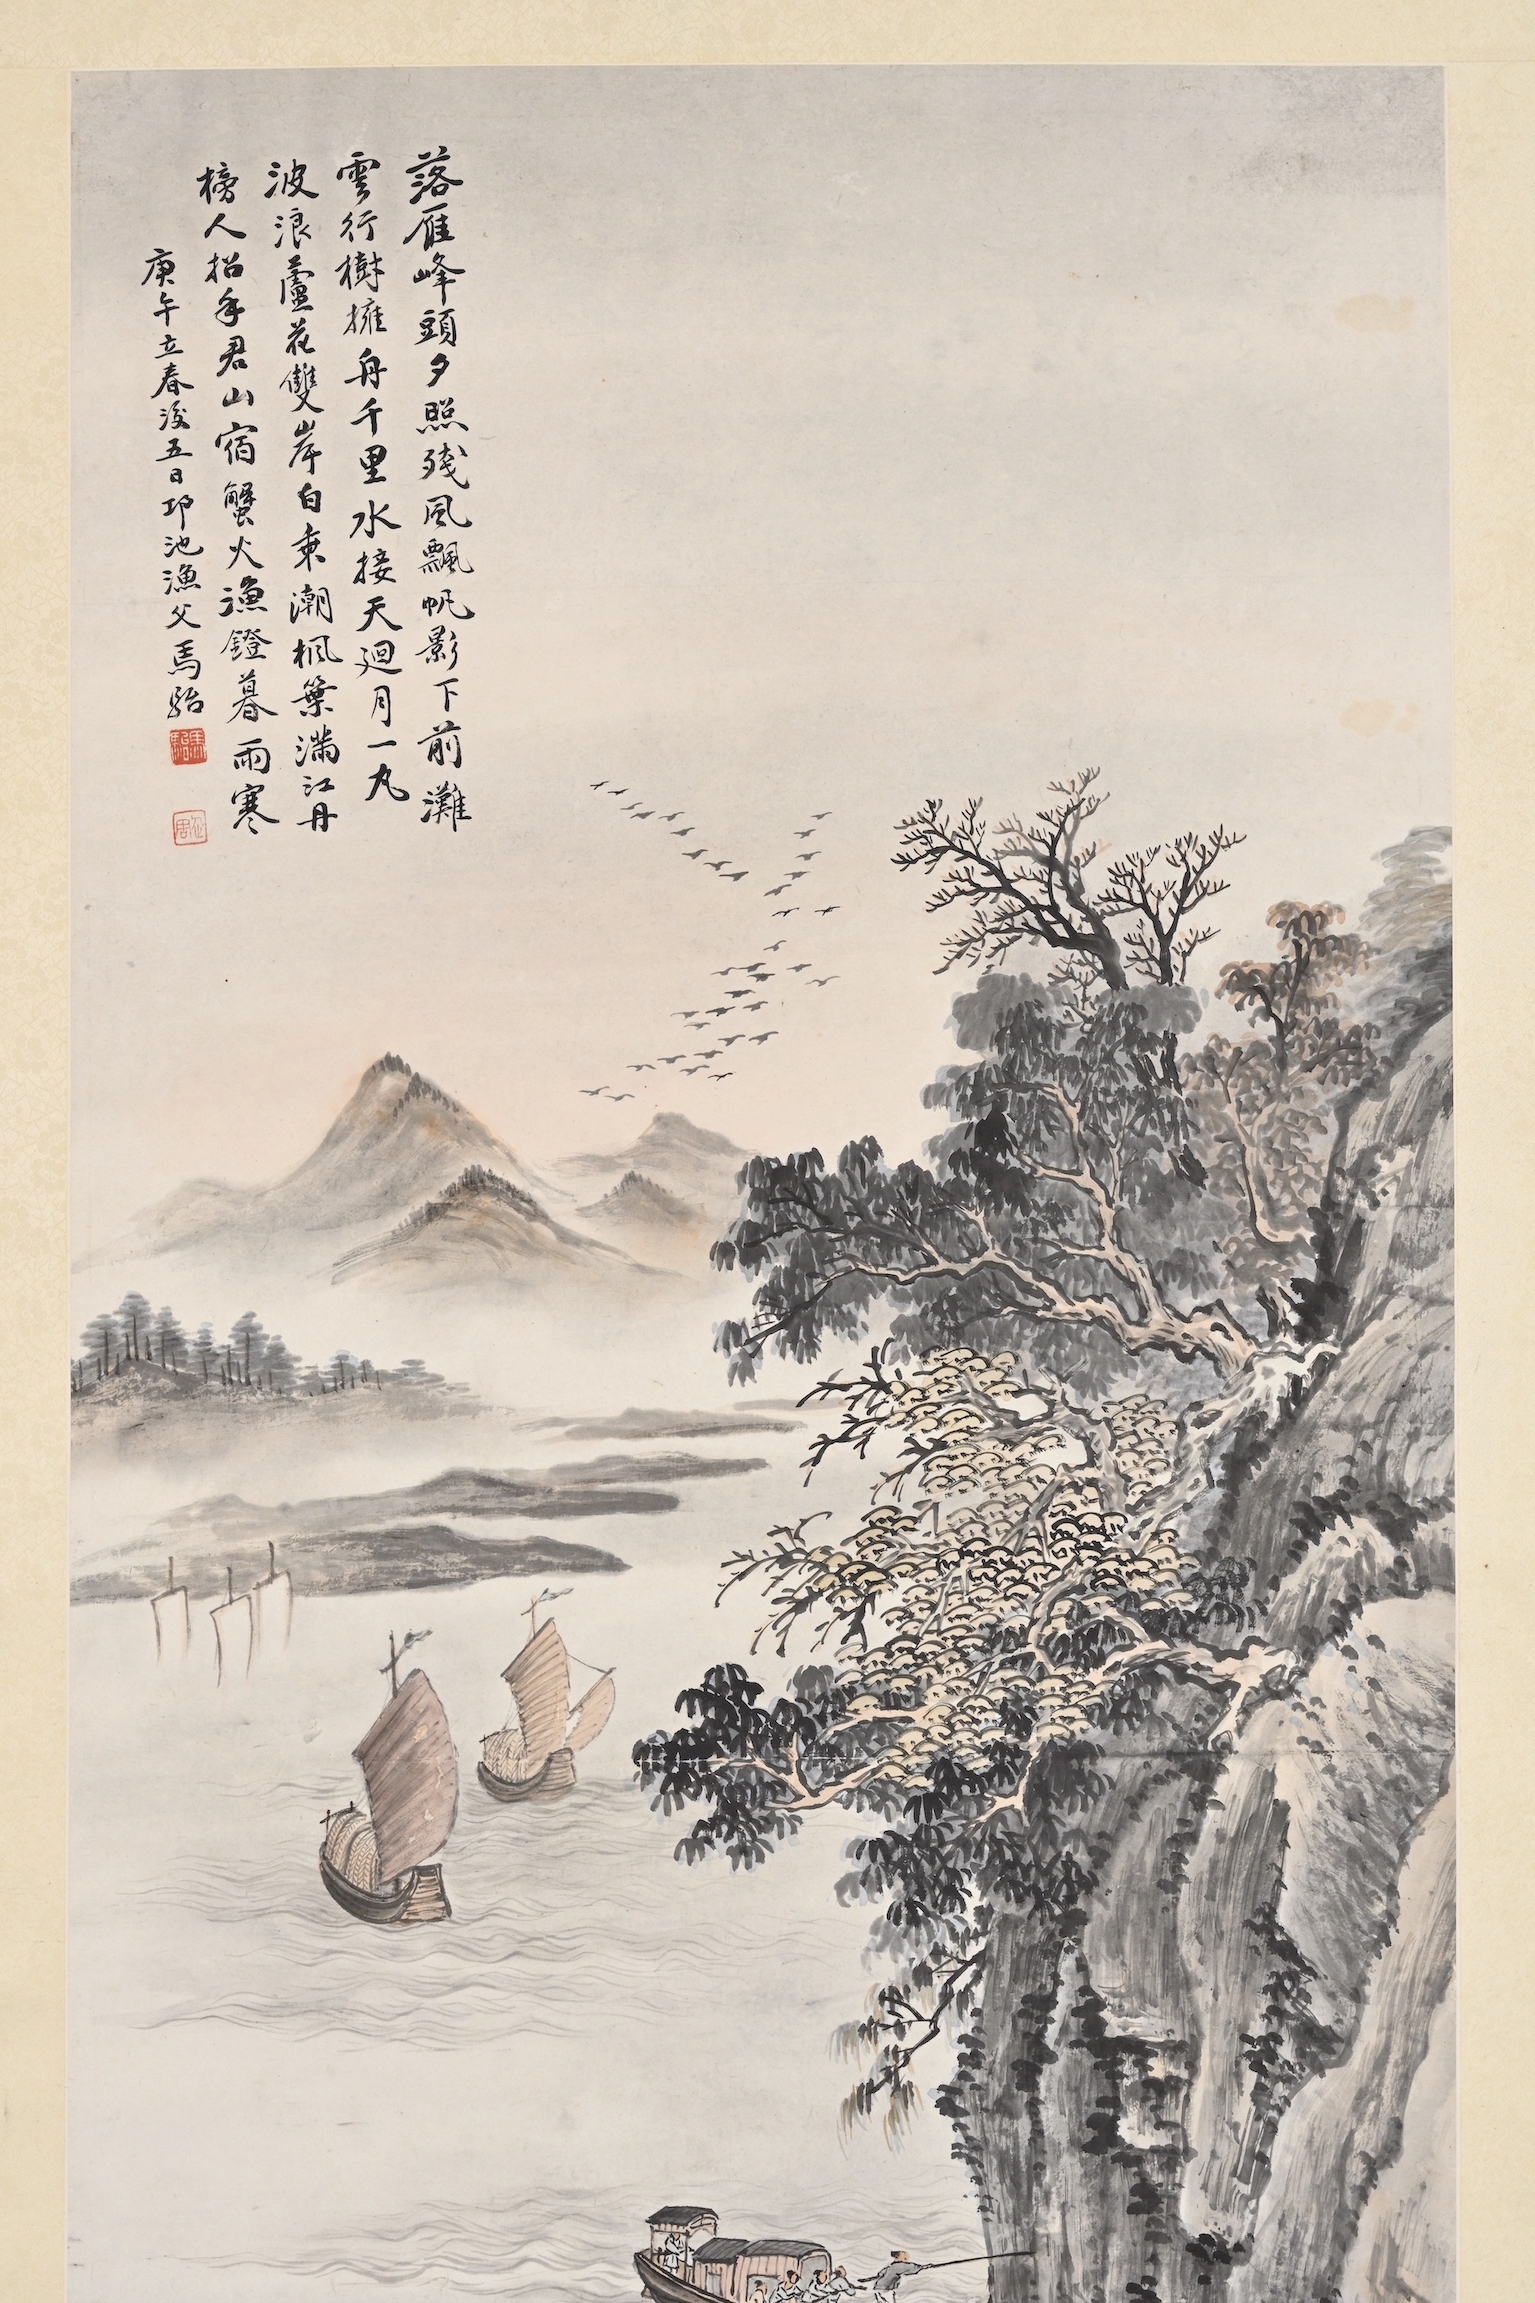 落雁峰頭夕照殘風飄帆影下前灘
雲行樹擁舟千里水接天迴月一丸
波浪蘆花雙岸白乘潮楓葉滿江丹
榜人招手君山宿蟹火漁鐙暮雨寒
庚午立春後五日邛池漁父馬駘
馬駘
企周